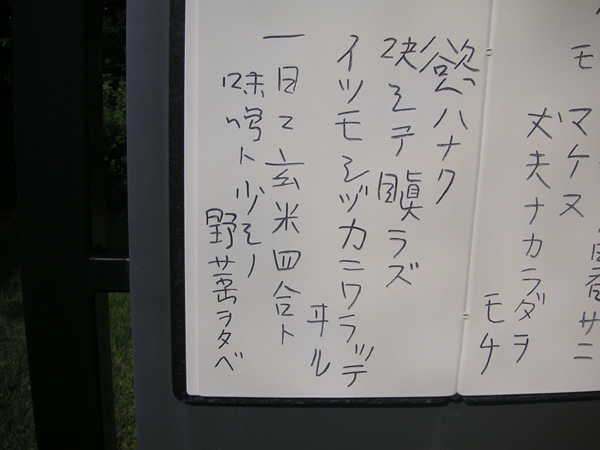 暑サニ
モ マケヌ
丈夫ナカラダヲ
モチ
慾ハナク
決シテ瞋ラズ
イツモシヅカニワラッテ
ヰル
一日ニ玄米四合ト
味噌ト少シノ
野菜ヲタベ